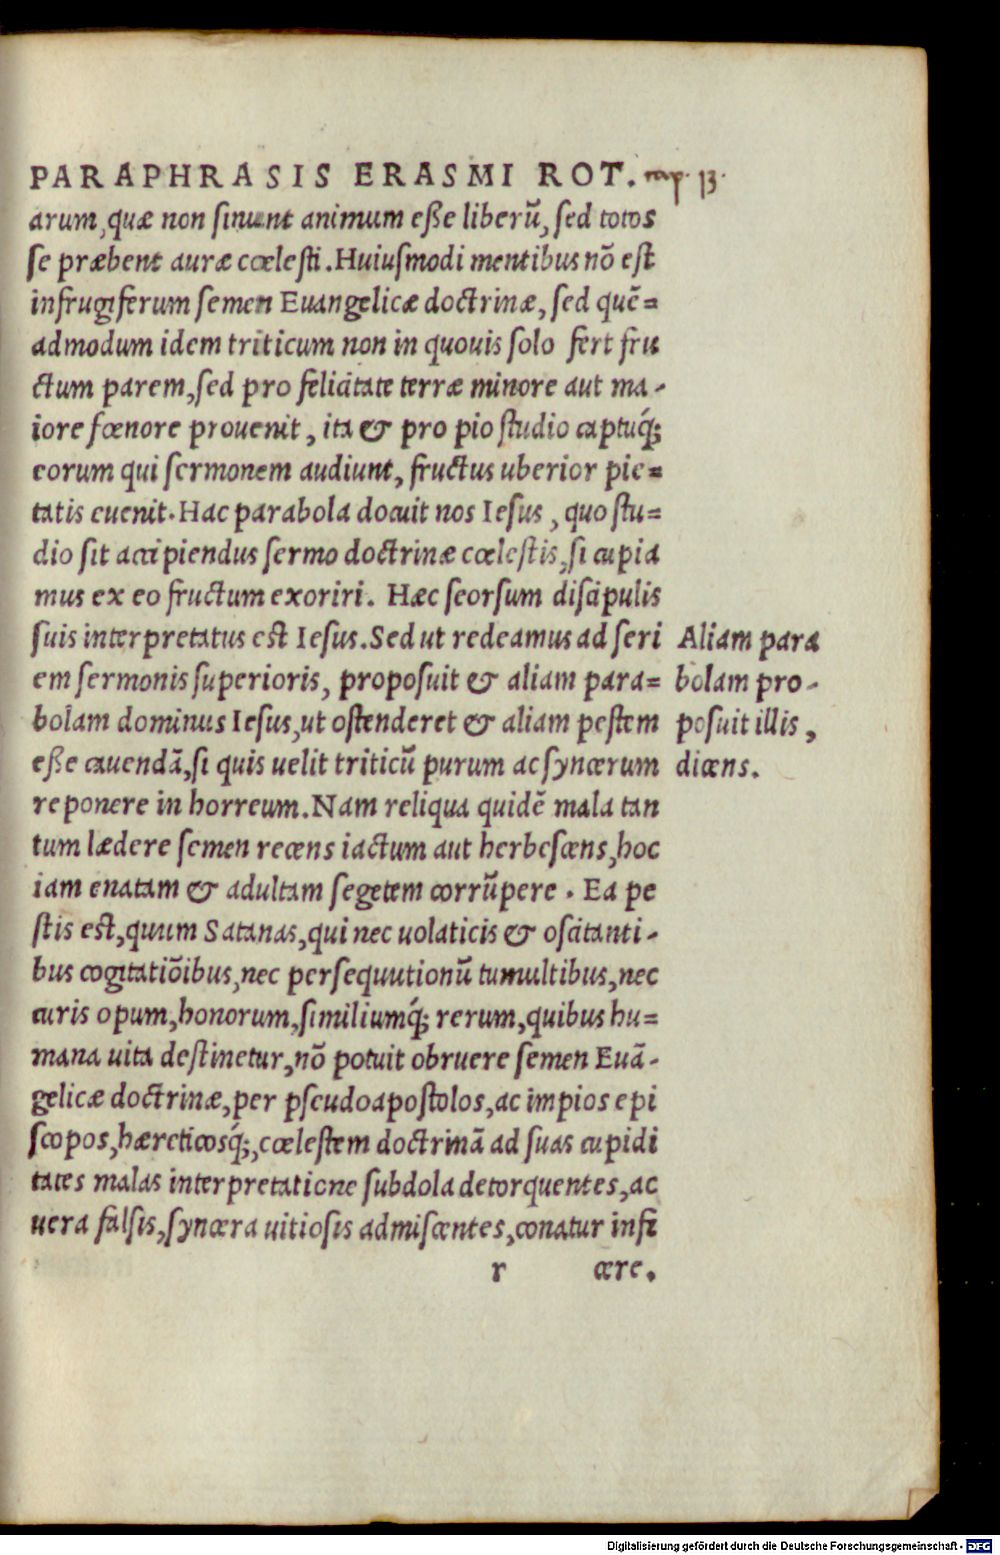 PARAPHRASIS ERASMI ROT. cap. 13.
arum, quæ non sinunt animum esse liberũ, sed totos
se præbent auræ cœlesti. Huiusmodi mentibus nõ est
infrugiferum semen Euangelicæ doctrinæ, sed quẽ=
admodum idem triticum non in quouis solo fert fru
ctum parem, sed pro felicitate terræ minore aut ma-
iore fœnore prouenit, ita & pro pio studio captuq́;
eorum qui sermonem audiunt, fructus uberior pie=
tatis euenit. Hac parabola docuit nos Iesus, quo stu=
dio sit accipiendus sermo doctrinæ cœlestis, si cupia
mus ex eo fructum exoriri. Hæc seorsum discipulis
suis interpretatus est Iesus. Sed ut redeamus ad seri
em sermonis superioris, proposuit & aliam para=
bolam dominus Iesus, ut ostenderet & aliam pestem
esse cauendã, si quis uelit triticũ purum ac syncerum
reponere in horreum. Nam reliqua quidẽ mala tan
tum lædere semen recens iactum aut herbescens, hoc
iam enatam & adultam segetem corrũpere. Ea pe
stis est, quum Satanas, qui nec uolaticis & oscitanti-
bus cogitatiõibus, nec persequutionũ tumultibus, nec
curis opum, honorum, similiumq́; rerum, quibus hu=
mana uita destinetur, nõ potuit obruere semen Euã-
gelicæ doctrinæ, per pseudoapostolos, ac impios epi
scopos, hæreticosq́;, cœlestem doctrinã ad suas cupidi
tates malas interpretatione subdola detorquentes, ac
uera falsis, syncera uitiosis admiscentes, conatur infi
r cere.
Aliam para
bolam pro-
posuit illis,
dicens.
Digitalisierung gefördert durch die Deutsche Forschungsgemeinschaft - DFG